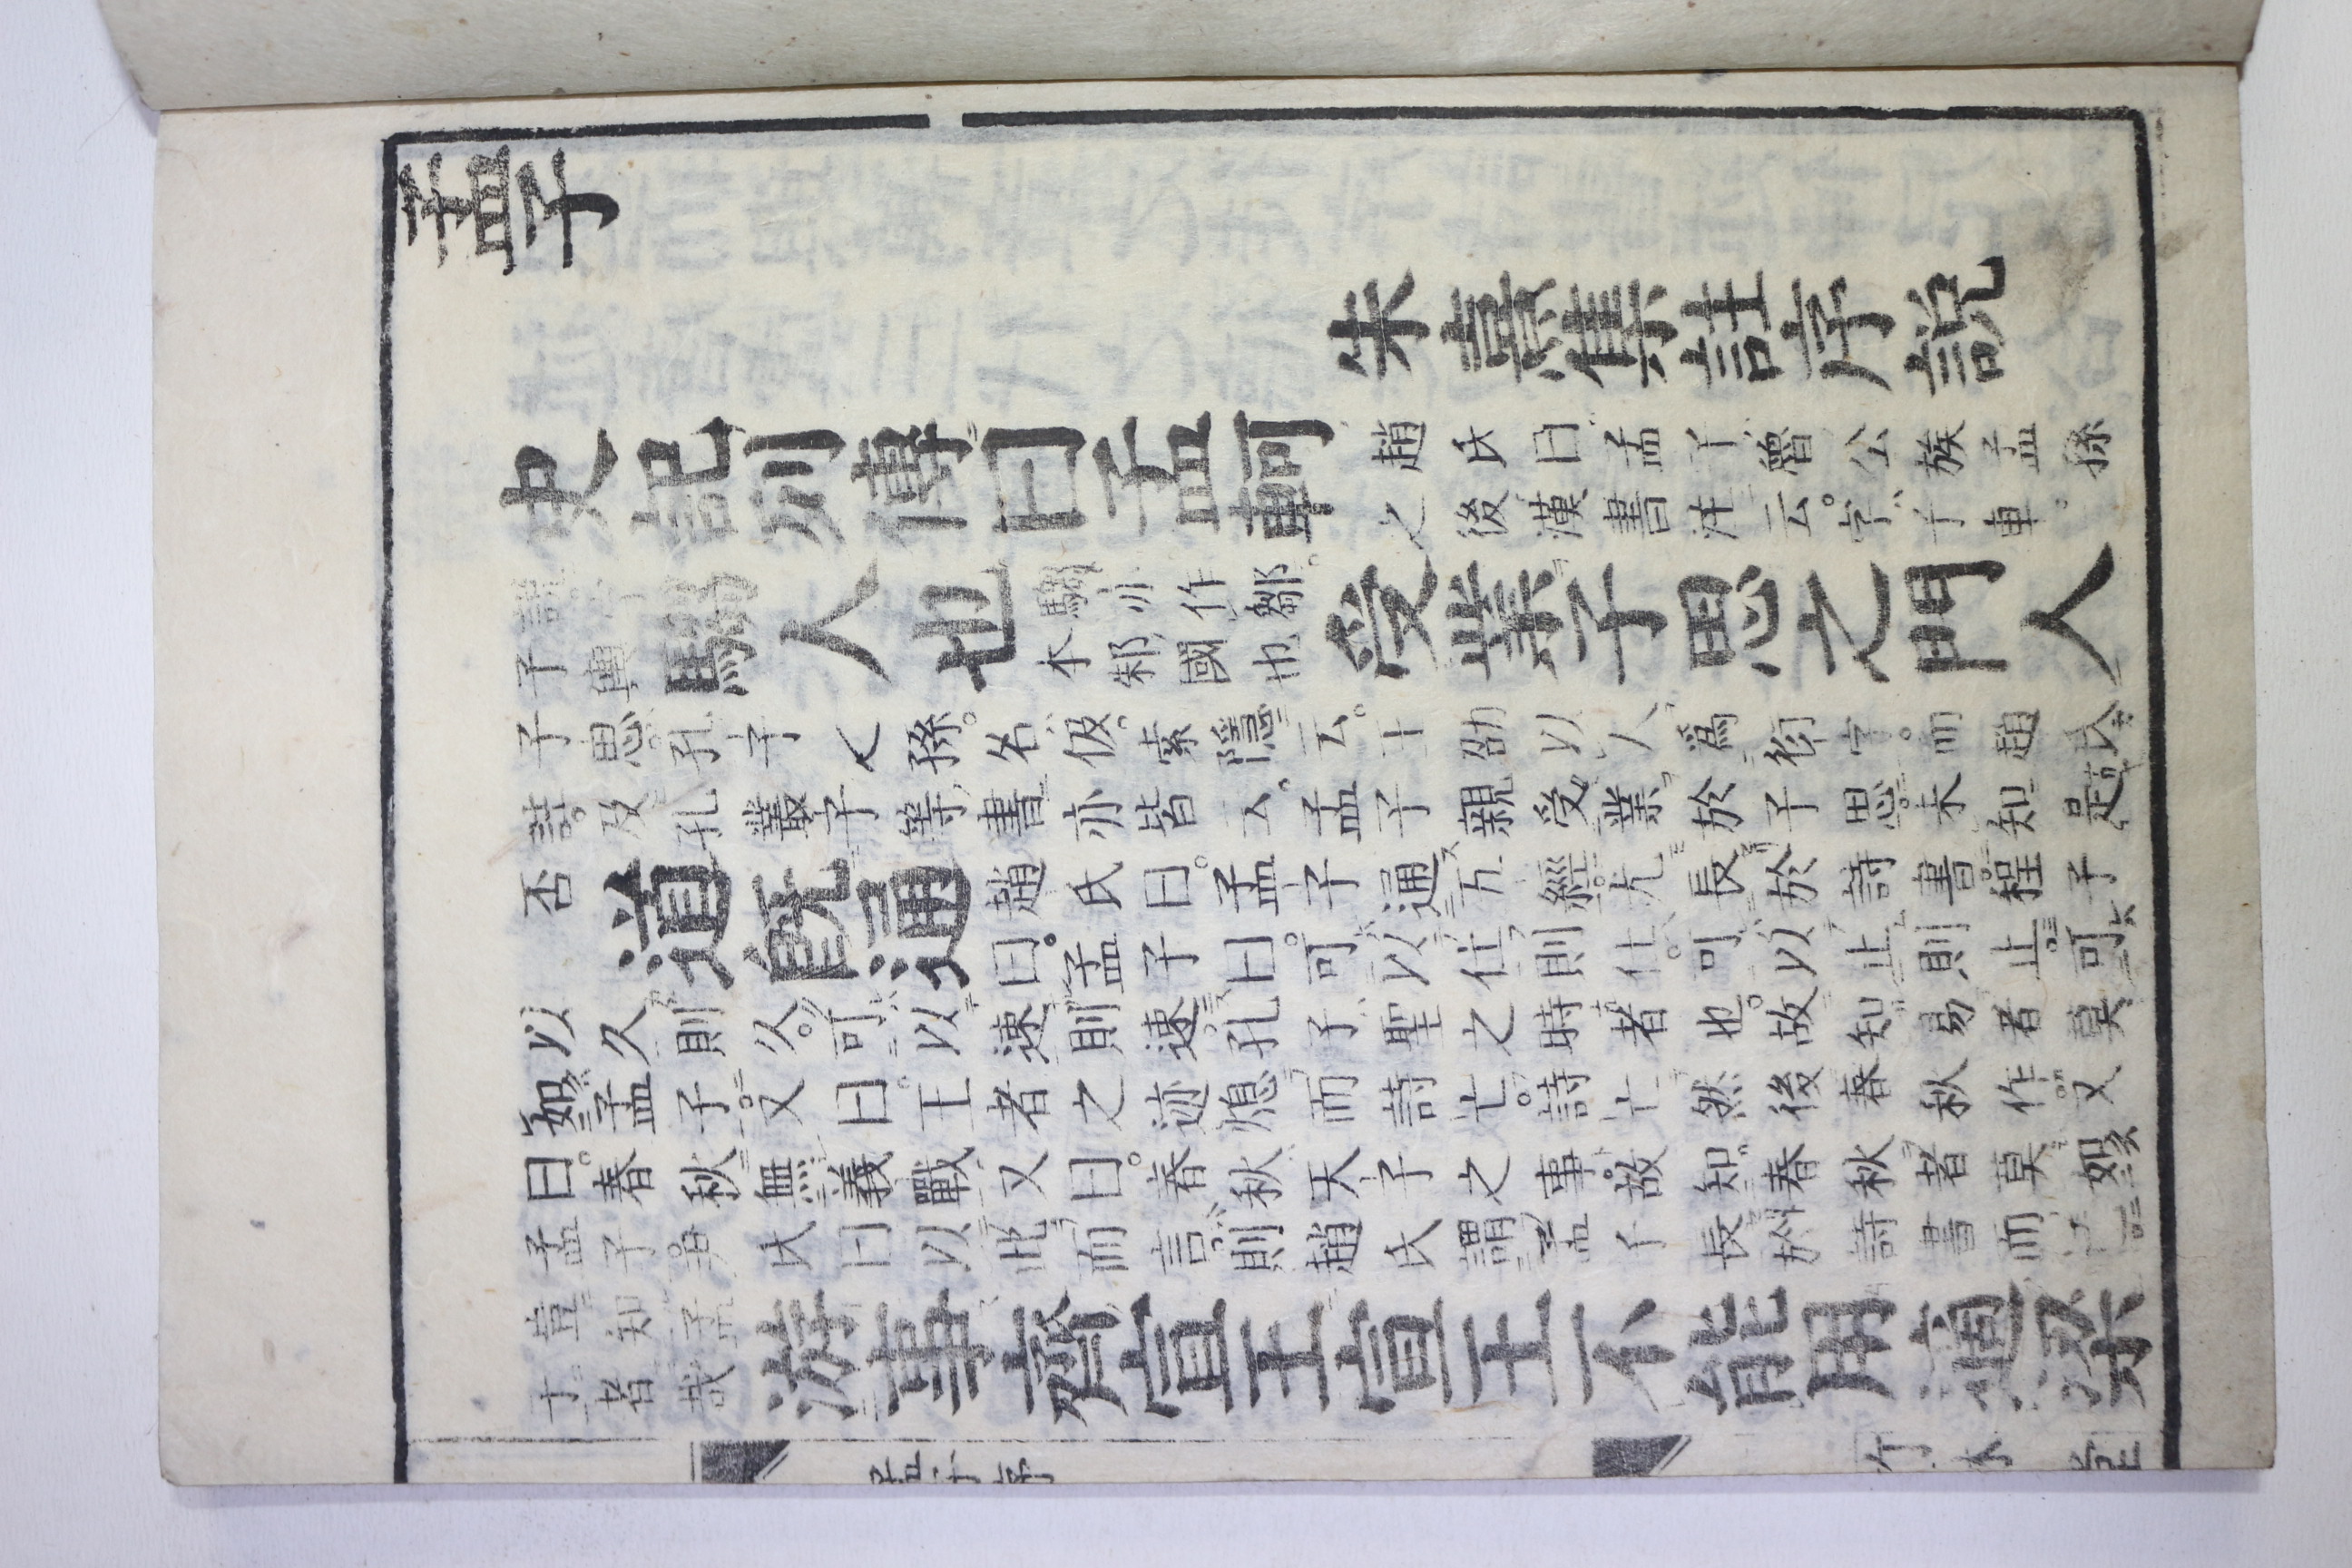 孟子
朱熹集註序說
史記列傳曰孟軻
趙氏曰孟子魯公族孟孫
之後漢書注云字子車
一說字
子輿
騶人也
騶亦作鄒
本邾國也
受業子思之門人
子思孔子之孫名伋索隱云王劭以人爲衍字而趙氏
註及孔叢子等書亦皆云孟子親受業於子思未知是
否
道既通
趙氏曰孟子通五經尤長於詩書程子
曰孟子曰可以仕則仕可以止則止可
以久則久可以速則速孔子聖之時者也故知易者莫
如孟子又曰王者之迹熄而詩亡詩亡然後春秋作又
曰春秋無義戰又曰春秋天子之事故知春秋者莫如
孟子尹氏曰以此而言則趙氏謂孟子長於詩書而已
豈知孟
子者哉
游事齊宣王宣王不能用適梁
孟子序